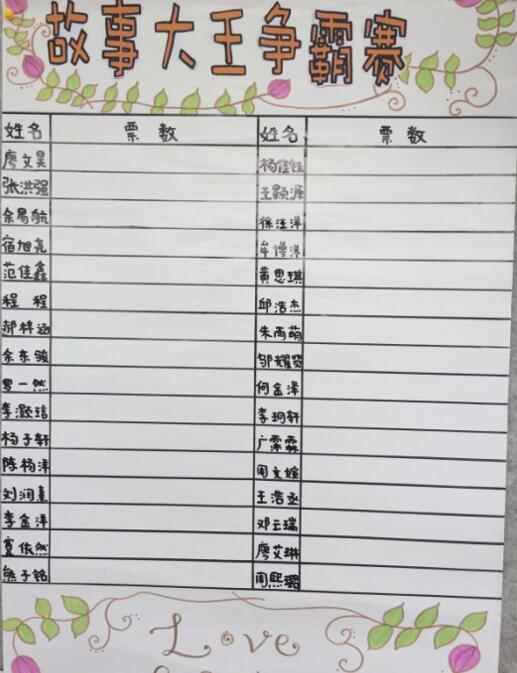 故事大王争霸赛
姓名 票数 姓名 票数
廖文昊 杨佳钰
张洪强 王颢源
余易航 徐汪洋
宿旭尧
范佳鑫 黄思琪
程程 邱浩杰
郝梓涵 朱雨萌
余东骏 邹耀贤
罗一然 何金泽
李灏琣 李玥轩
杨子轩 广霏霖
陈杨洋 周文婷
刘润熹 王浩丞
李金洋 邓云瑞
寇依然 廖艾琳
熊子铭 周熙璐
Love